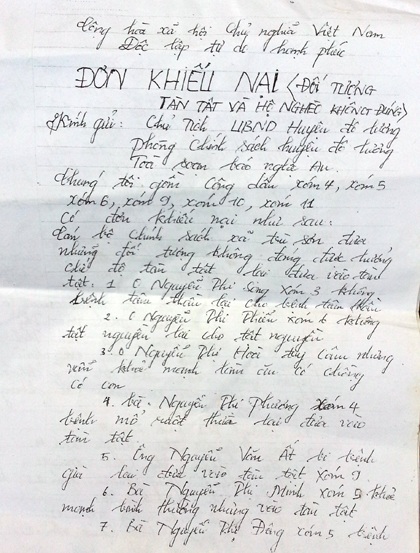 Cộng hòa xã hội Chủ nghĩa Việt Nam
Độc lập tự do hạnh phúc
ĐƠN KHIẾU NẠI (ĐỐI TƯỢNG
TÀN TẬT VÀ HỆ NGHÈO KHÔNG ĐÚNG)
Kính gửi: Chủ Tịch UBND Huyện đô lương
Phòng Chính sách huyện đô lương
Tòa soạn báo nghệ An.
Chúng tôi gồm Công dân xóm 4, xóm 5
xóm 6, xóm 9, xóm 10, xóm 11
Có đơn khiếu nại như sau:
Cán bộ Chính sách xã trù sơn đưa
những đối tượng không đúng được hưởng
chế độ tàn tật lại đưa vào tàn
tật. 1 O Nguyễn Phi Song Xóm 3 không
bệnh tâm thần lại cho bệnh tâm thần
2. O Nguyễn Phi xóm 6 không
tật nguyền lại cho tật nguyền
3. O Nguyễn Phi Hoài tuy câm nhưng
vẫn khỏe mạnh làm ăn có chồng
Có con
4. bà. Nguyễn Thị Phương xóm 4
bệnh mổ ruột thừa lại đưa vào
tàn tật
5. Ông Nguyễn Văn Ất bị bệnh
già lại đưa vào tàn tật xóm 9
6. Bà Nguyễn Thị Minh xóm 9 khỏe
mạnh bình thường nhưng vào tàn tật
7. Bà Nguyễn Thị xóm 5 bệnh